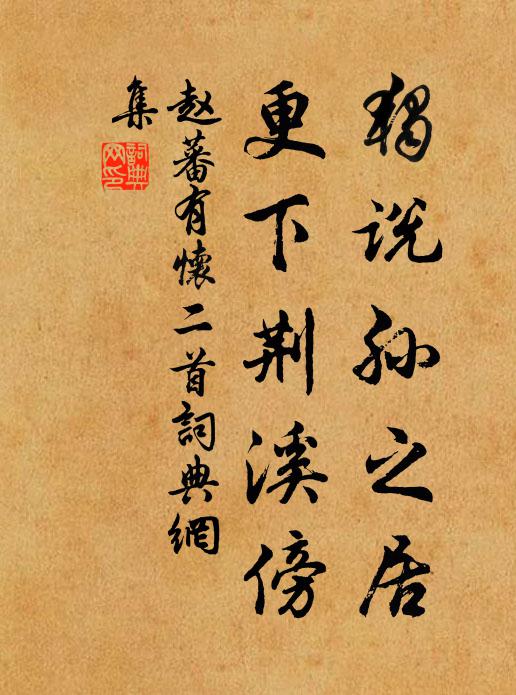 独说孙之居
更下荆溪傍
赵蕃有懷二首詞典網
集
詞典
网印